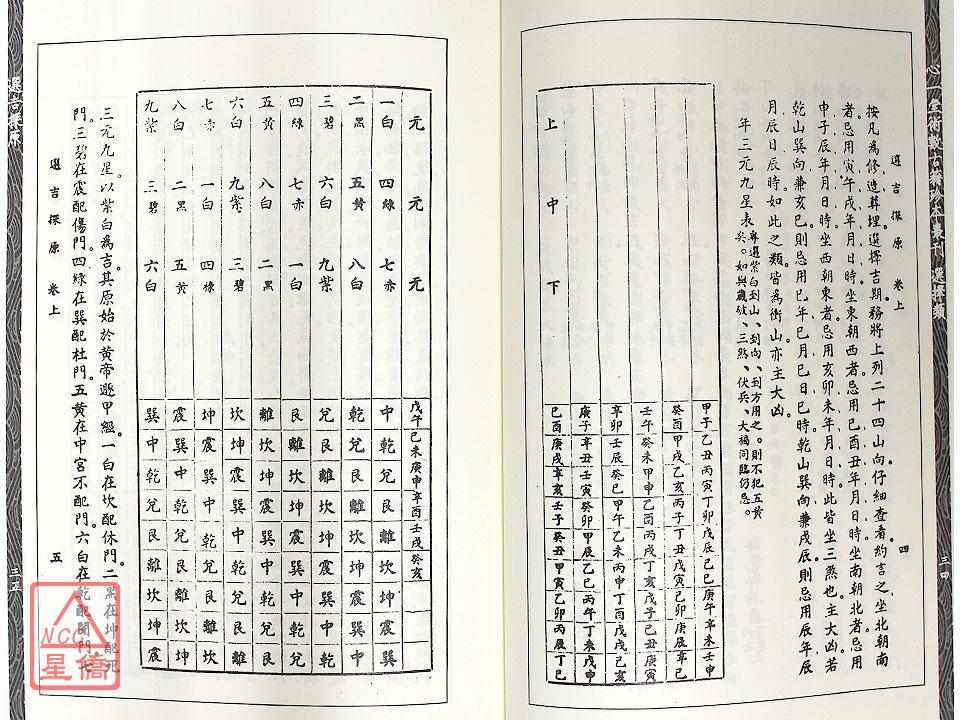 選吉探原 卷上
四
三四
按凡為修造葬埋選擇吉期務將上列二十四山向仔細查看約言之坐北朝南
者忌用寅午戌年月日時坐東朝西者忌用巳酉丑年月日時坐南朝北者忌用
申子辰年月日時坐西朝東者忌用亥卯未年月日時此皆坐三煞也主大凶若
乾山巽向兼亥巳則忌用巳年巳月巳日巳時乾山巽向兼戌辰則忌用辰年辰
月辰日辰時如此之類皆為衝山亦主大凶
年三元九星表 專選紫白到山、到向、到方用之。則不犯五黃
矣。如與歲破、三煞、伏兵、大禍同臨仍忌。
甲子乙丑丙寅丁卯戊辰己巳庚午辛未壬申
癸酉甲戌乙亥丙子丁丑戊寅己卯庚辰辛巳
壬午癸未甲申乙酉丙戌丁亥戊子己丑庚寅
辛卯壬辰癸巳甲午乙未丙申丁酉戊戌己亥
庚子辛丑壬寅癸卯甲辰乙巳丙午丁未戊申
上中下 己酉庚戌辛亥壬子癸丑甲寅乙卯丙辰丁巳
元元元 戊午己未庚申辛酉壬戌癸亥
一白四綠七赤 中乾兌艮離坎坤震巽
二黑五黃八白 乾兌艮離坎坤震巽中
三碧六白九紫 兌艮離坎坤震巽中乾
四綠七赤一白 艮離坎坤震巽中乾兌
五黃八白二黑 離坎坤震巽中乾兌艮
六白九紫三碧 坎坤震巽中乾兌艮離
七赤一白四綠 坤震巽中乾兌艮離坎
八白二黑五黃 震巽中乾兌艮離坎坤
九紫三碧六白 巽中乾兌艮離坎坤震
三元九星以紫白為吉其原始於黃帝遯甲經。一白在坎配休門。二黑在坤配死
門。三碧在震配傷門。四綠在巽配杜門。五黃在中宮不配門。六白在乾配開門。七
選吉探原 卷上
五
三五
選吉探原
NCC
星僑